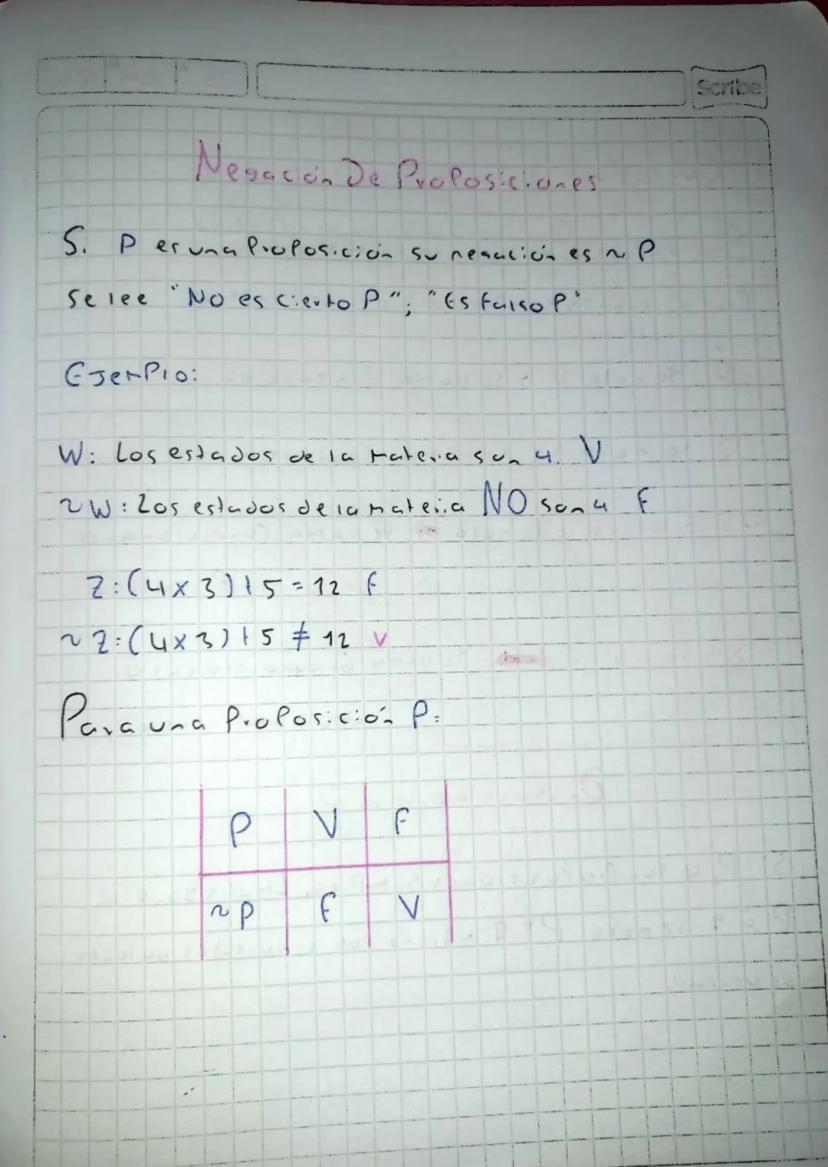 Scribe
Negación De Proposiciones
Si P es una Proposición su negación es ~ P
Se lee "No es cierto P"; "Es falso P"
Ejemplo:
W: Los estados de la materia son 4. V
~W: Los estados de la materia NO son 4 F
Z: (4 x 3) + 5 = 12 F
~ Z: (4 x 3) + 5 ≠ 12 V
Para una Proposición P:
P V F
~P F V